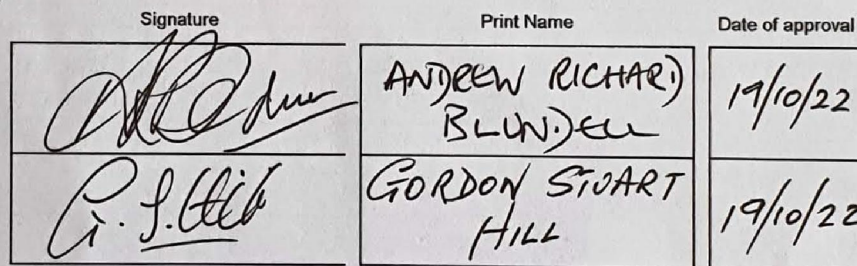 Signature Print Name Date of approval
ANDREW RICHARD
BLUNDELL
19/10/22
G. S. Hill
GORDON STUART
HILL
19/10/22